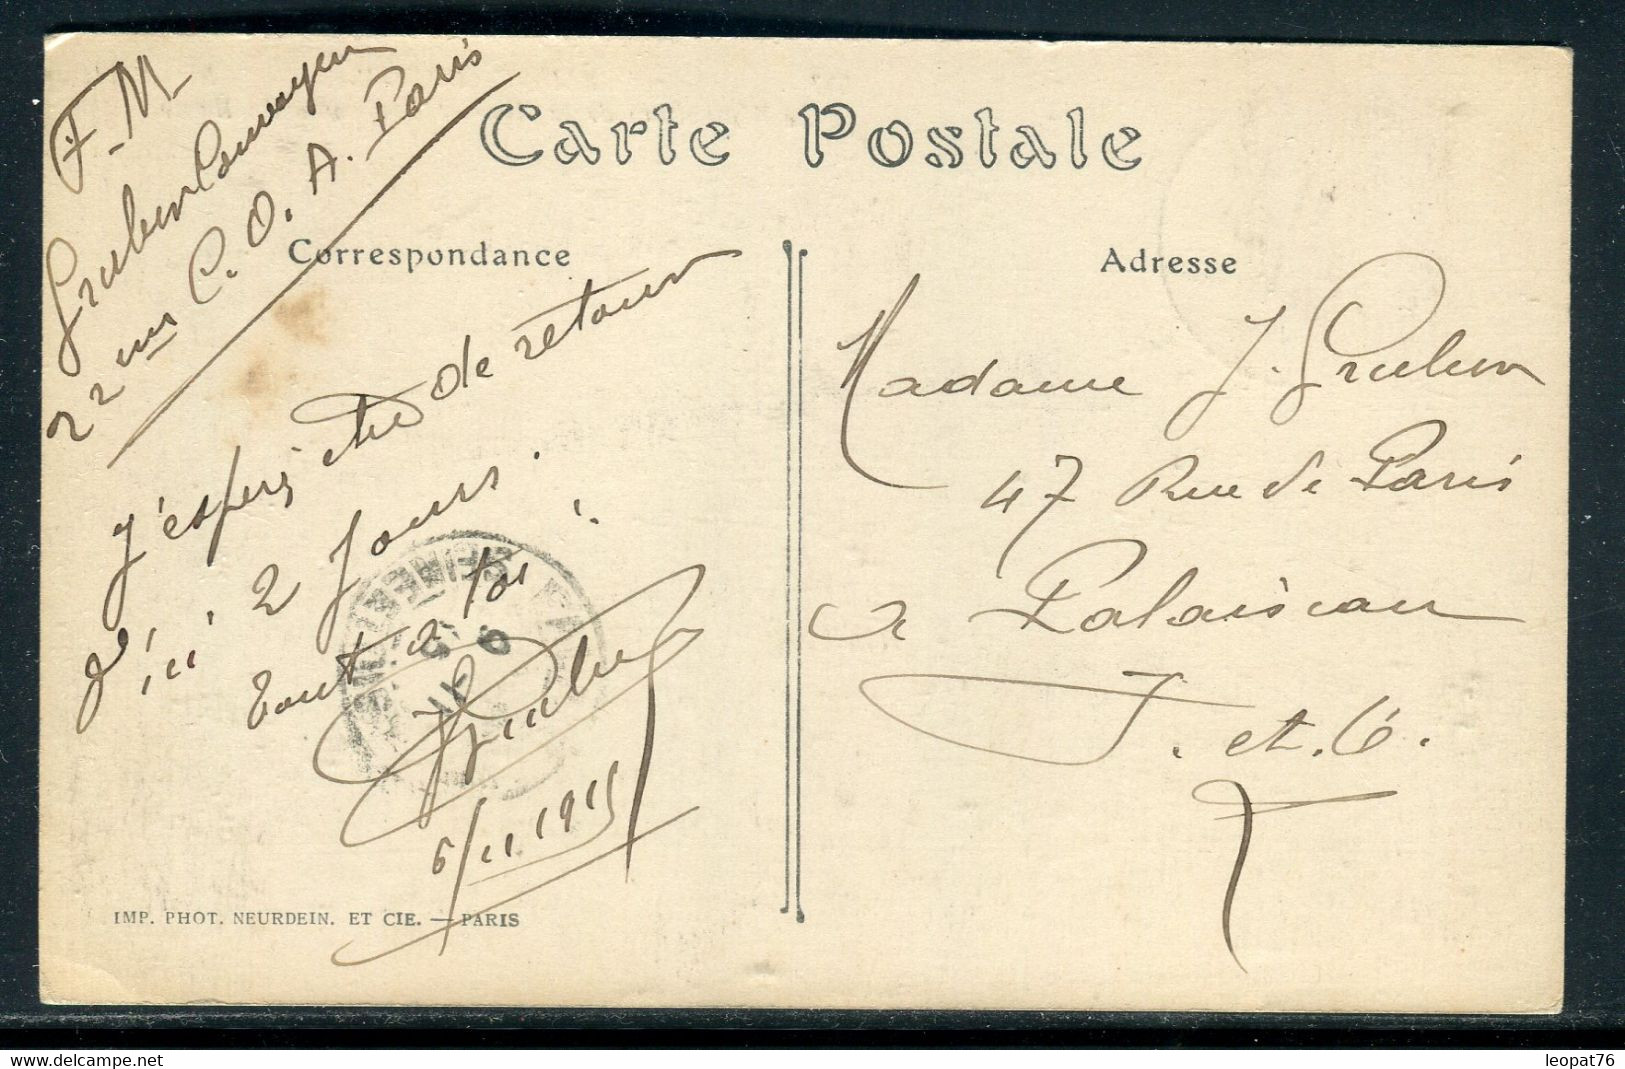 F. M
Gruber Convoyeur
22 me C. O. A. Paris
Carte Postale
Correspondance
Adresse
J'espère être de retour
d'ici 2 jours.
Tout à toi
Gruber
6/11 1915
Madame J. Gruber
47 Rue de Paris
a Palaiseau
S. et. O.
IMP. PHOT. NEURDEIN. ET CIE. — PARIS
leopat76